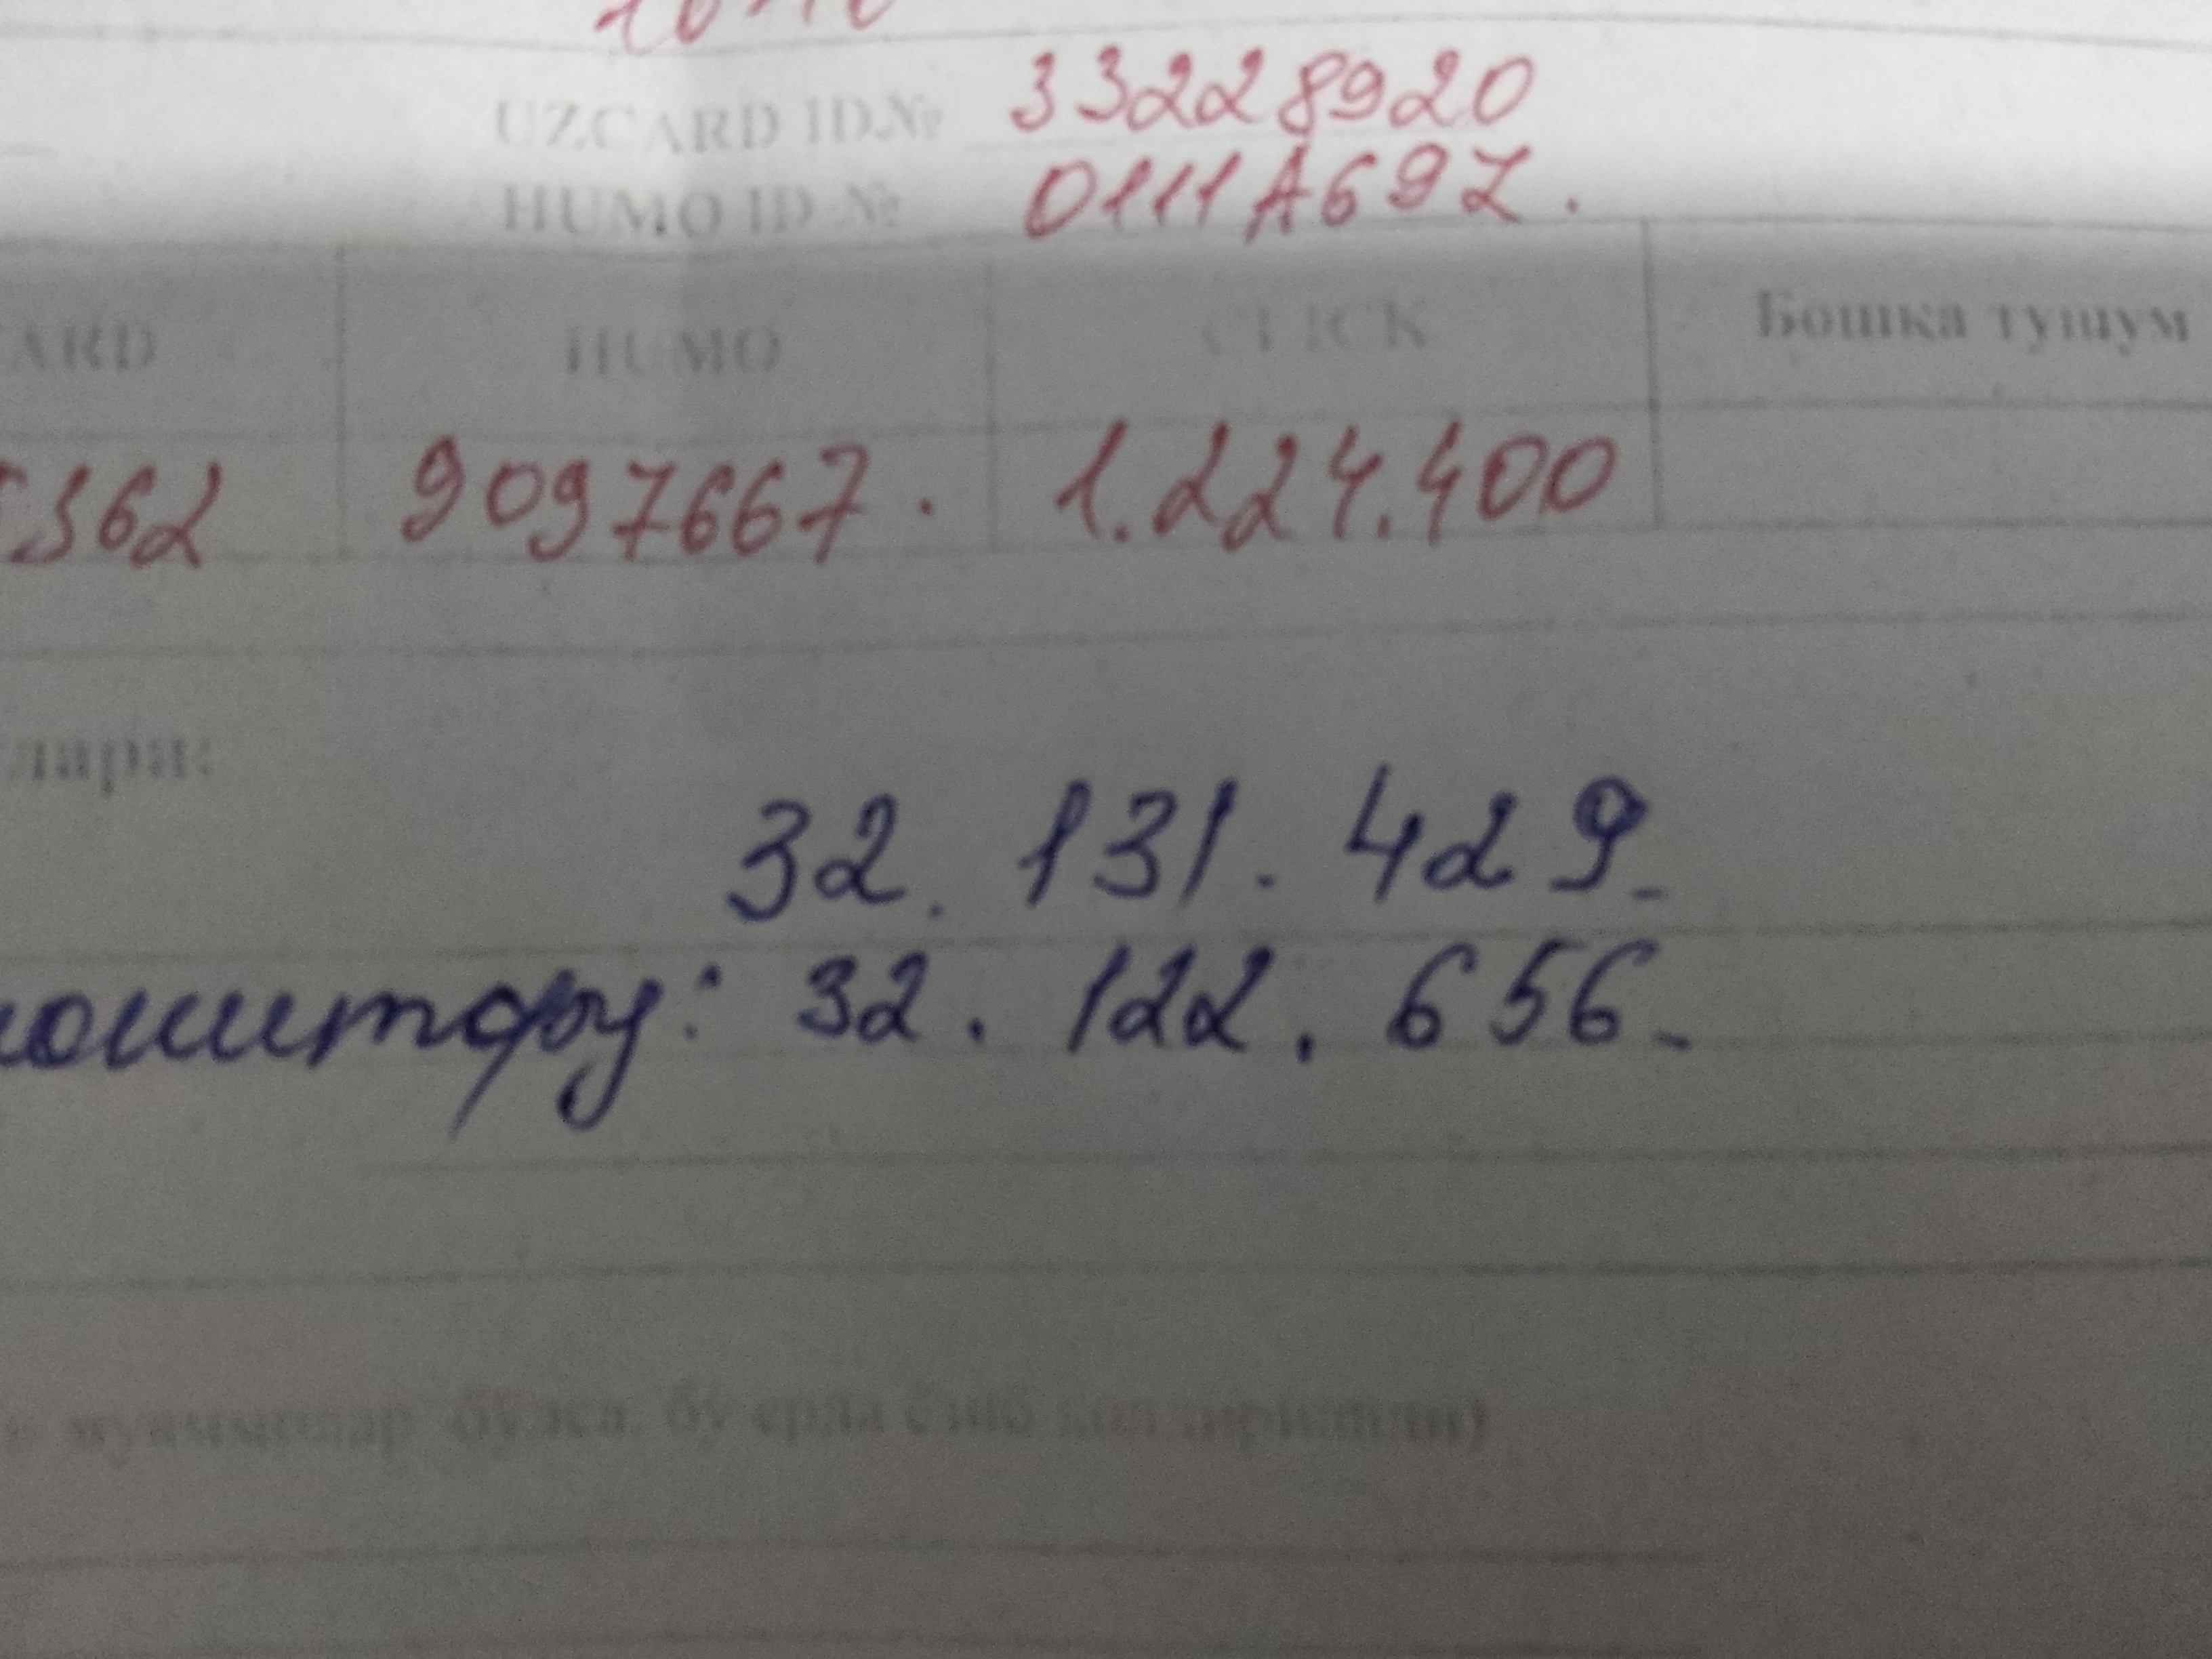 UZCARD ID.№ 33228920
HUMO ID № 0111A69Z.
ARD HUMO CLICK Бошка тушум
362 9097667. 1.224.400
лари:
32. 131. 429.
32. 122. 656.
муаммолар бўлса, бу ерда ёзиб колдирилади)